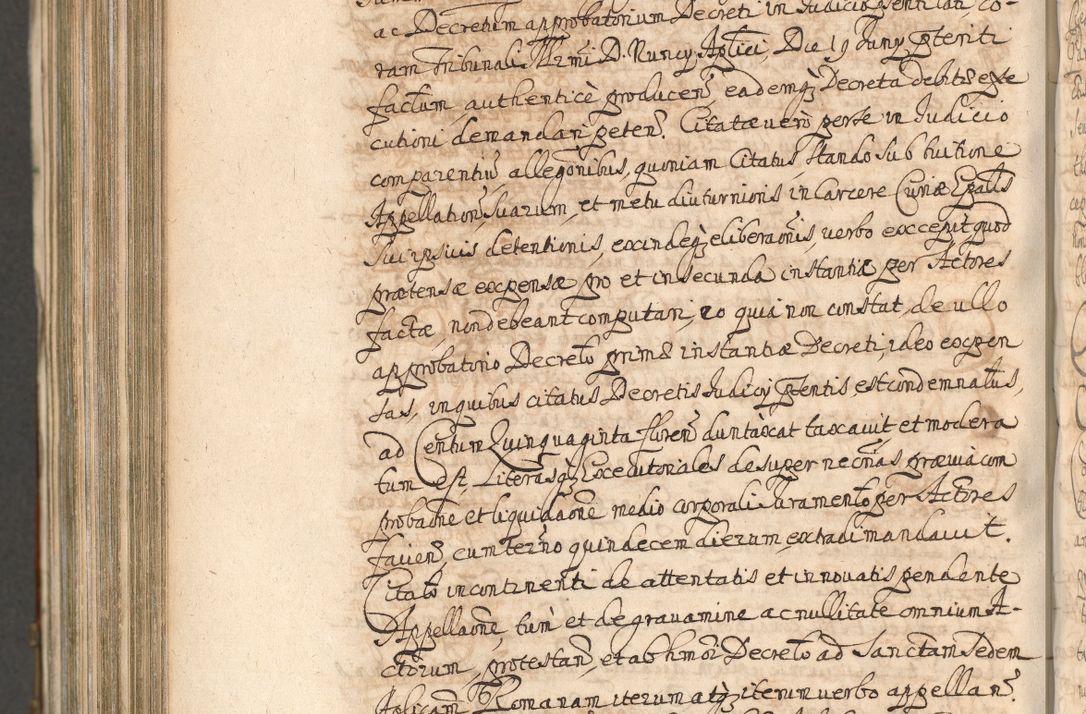 ac Decretum approbatorium Decreti in Judicio ventilati, co-
ram Tribunali Illrmi D. Nuncy Aplici, Die 19 Juny pteriti
factum, authenticè producen, eademq; Decreta debitæ exe
cutioni demandari peten. Citatæ verò perse in Judicio
comparentis, allegonibus, quoniam Citatus stando sub buitione
Appellation suarum, et metu diuturnionis in Carcere Curiæ Epalis
Sui ipsius detentionis, exindeq; eliberaonis, verbo excepit quod
prætensæ expensæ pro et in secunda instantiæ per Actores
factæ, non debeant computari, eo quia non constat, de ullo
approbatorio Decreto primæ instantiæ Decreti, ideo expen
sas, in quibus citatus Decretis Judicy ptentis, est condemnatus,
ad Centum Quinquaginta floren duntaxat taxavit et modera
tum est, Literasq; Executoriales desuper necrias prævia com
probaone et liquidaone medio corporali Juramento per Actores
facien, cum termo quindecem dierum, extradi mandavit.
Citato incontinenti de attentatis et innovatis pendente
Appellaone, tum et de gravamine ac nullitate omnium A-
ctorum, protestan, et ab hmoi Decreto ad Sanctam Sedem
Aplicam Romanam iterum atq; iterum verbo appellan.